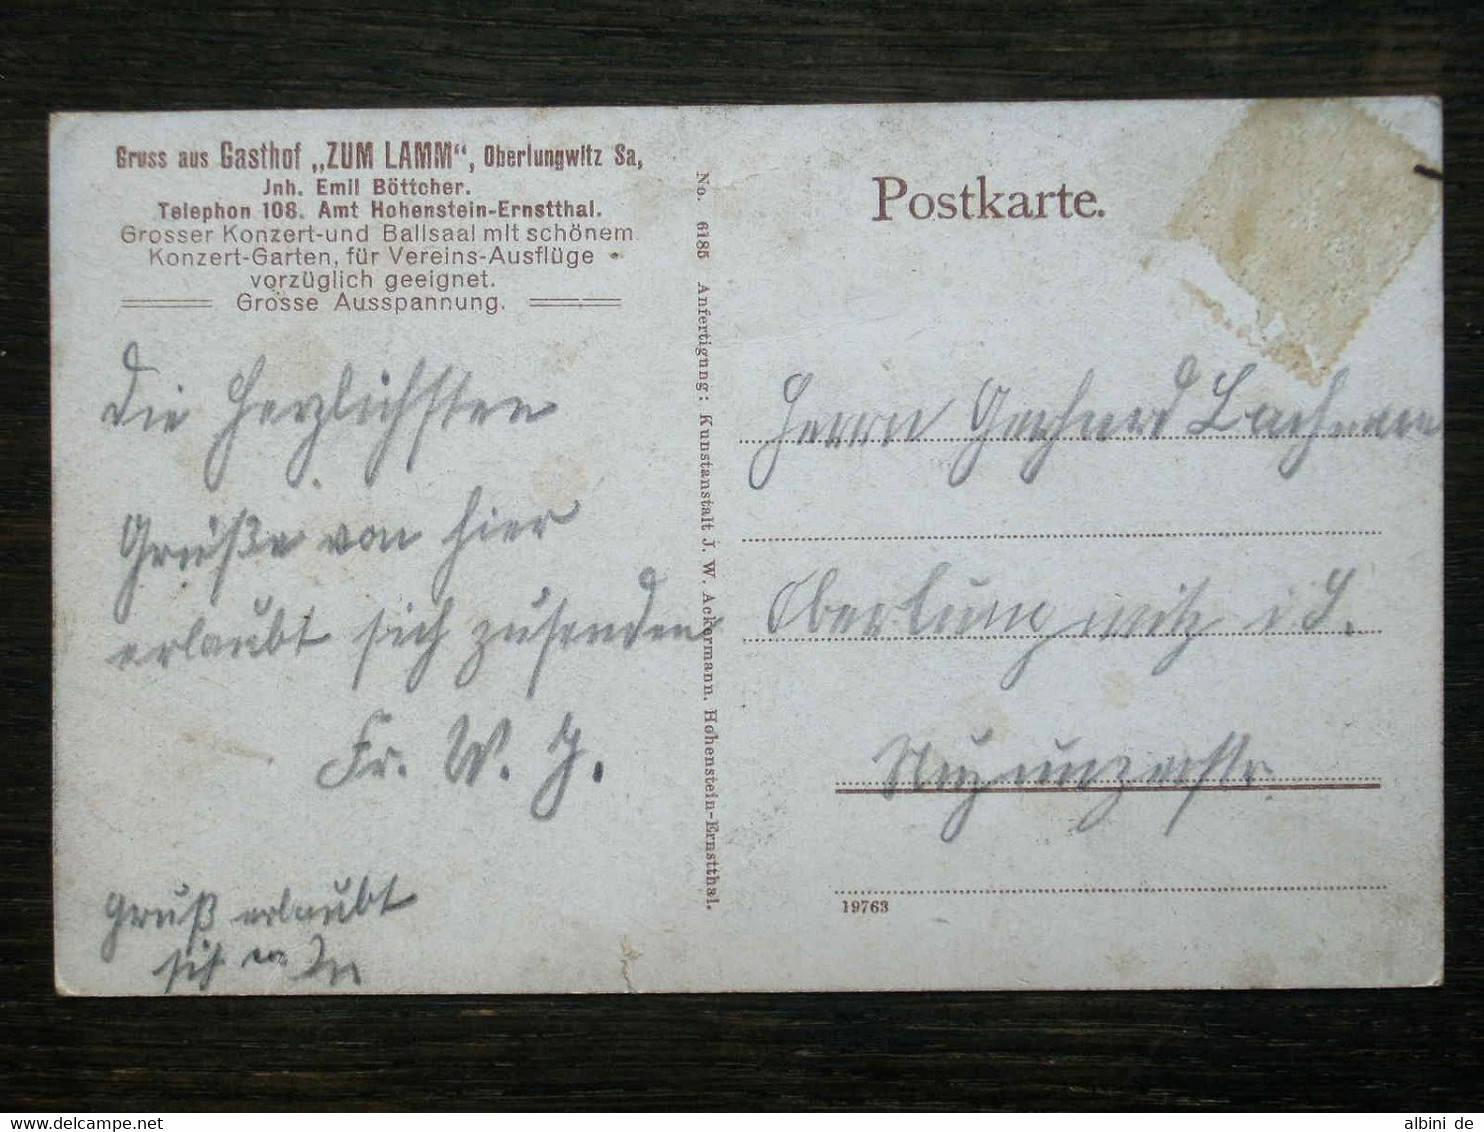 Gruss aus Gasthof „ZUM LAMM“, Oberlungwitz Sa,
Jnh. Emil Böttcher.
Telephon 108. Amt Hohenstein-Ernstthal.
Grosser Konzert-und Ballsaal mit schönem
Konzert-Garten, für Vereins-Ausflüge
vorzüglich geeignet.
Grosse Ausspannung.
Die Herzlichsten
Grüße von hier
erlaubt sich zusenden
Fr. W. J.
Gruß erlaubt
sich
No. 6185 Anfertigung: Kunstanstalt J. W. Ackermann, Hohenstein-Ernstthal.
Postkarte.
Herrn Gerhard Bachmann
Oberlungwitz i. S.
19763
albini de